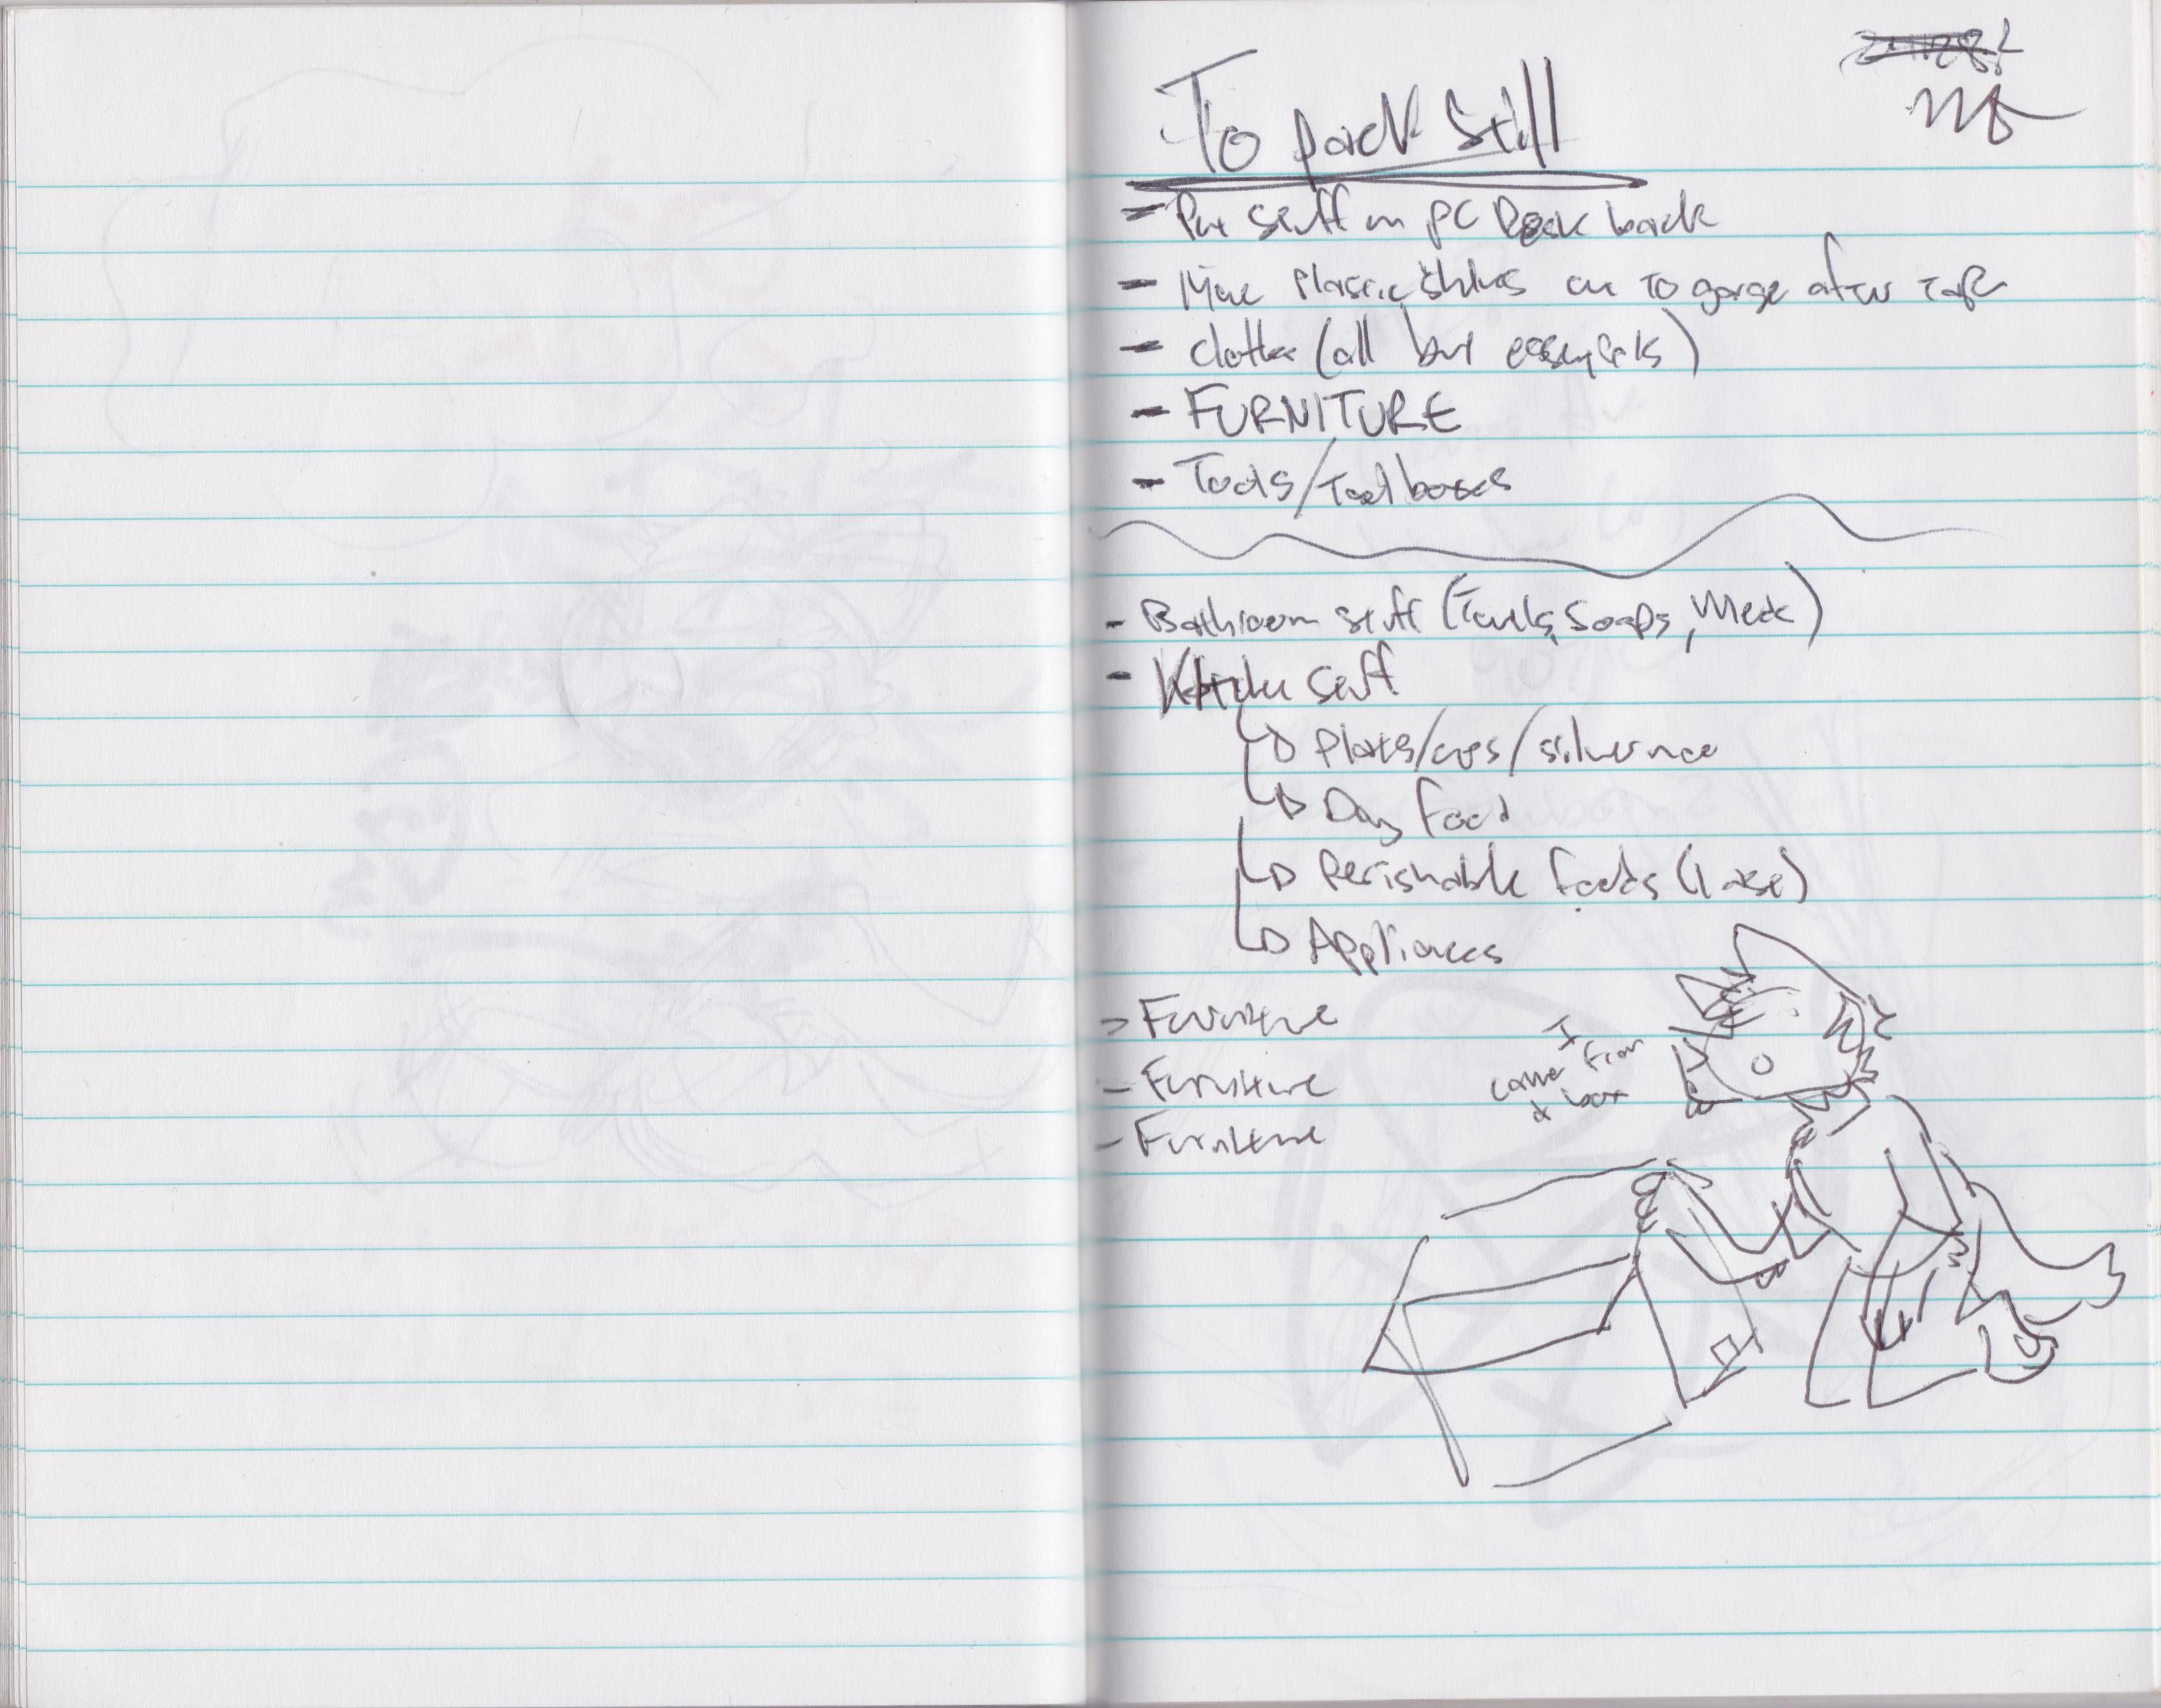 To pack still
- Put stuff in PC Desk back
- Move Plastic shelves to garage after
- clothes (all but essentials)
- FURNITURE
- Tools/Toolboxes
- Bathroom stuff (Towels, Soaps, Meds)
- Kitchen stuff
Plates/cups/silverware
Dry food
Perishable foods (last)
Appliances
- Furniture
- Furniture
- Furniture
I
came from
a box